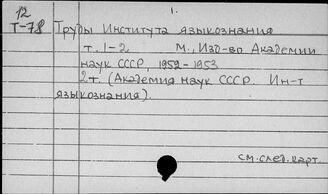 1.
12
Т-78
Труды Института языкознания
т. 1-2 М., Изд-во Академии
наук СССР, 1952-1953
2 т. (Академия наук СССР. Ин-т
языкознания).
см. след. карт.